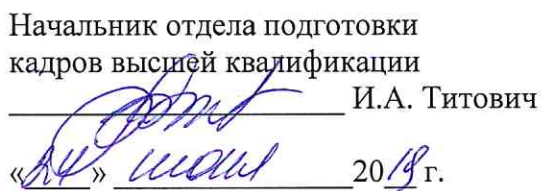 Начальник отдела подготовки
кадров высшей квалификации
И.А. Титович
«24» июня 2019 г.